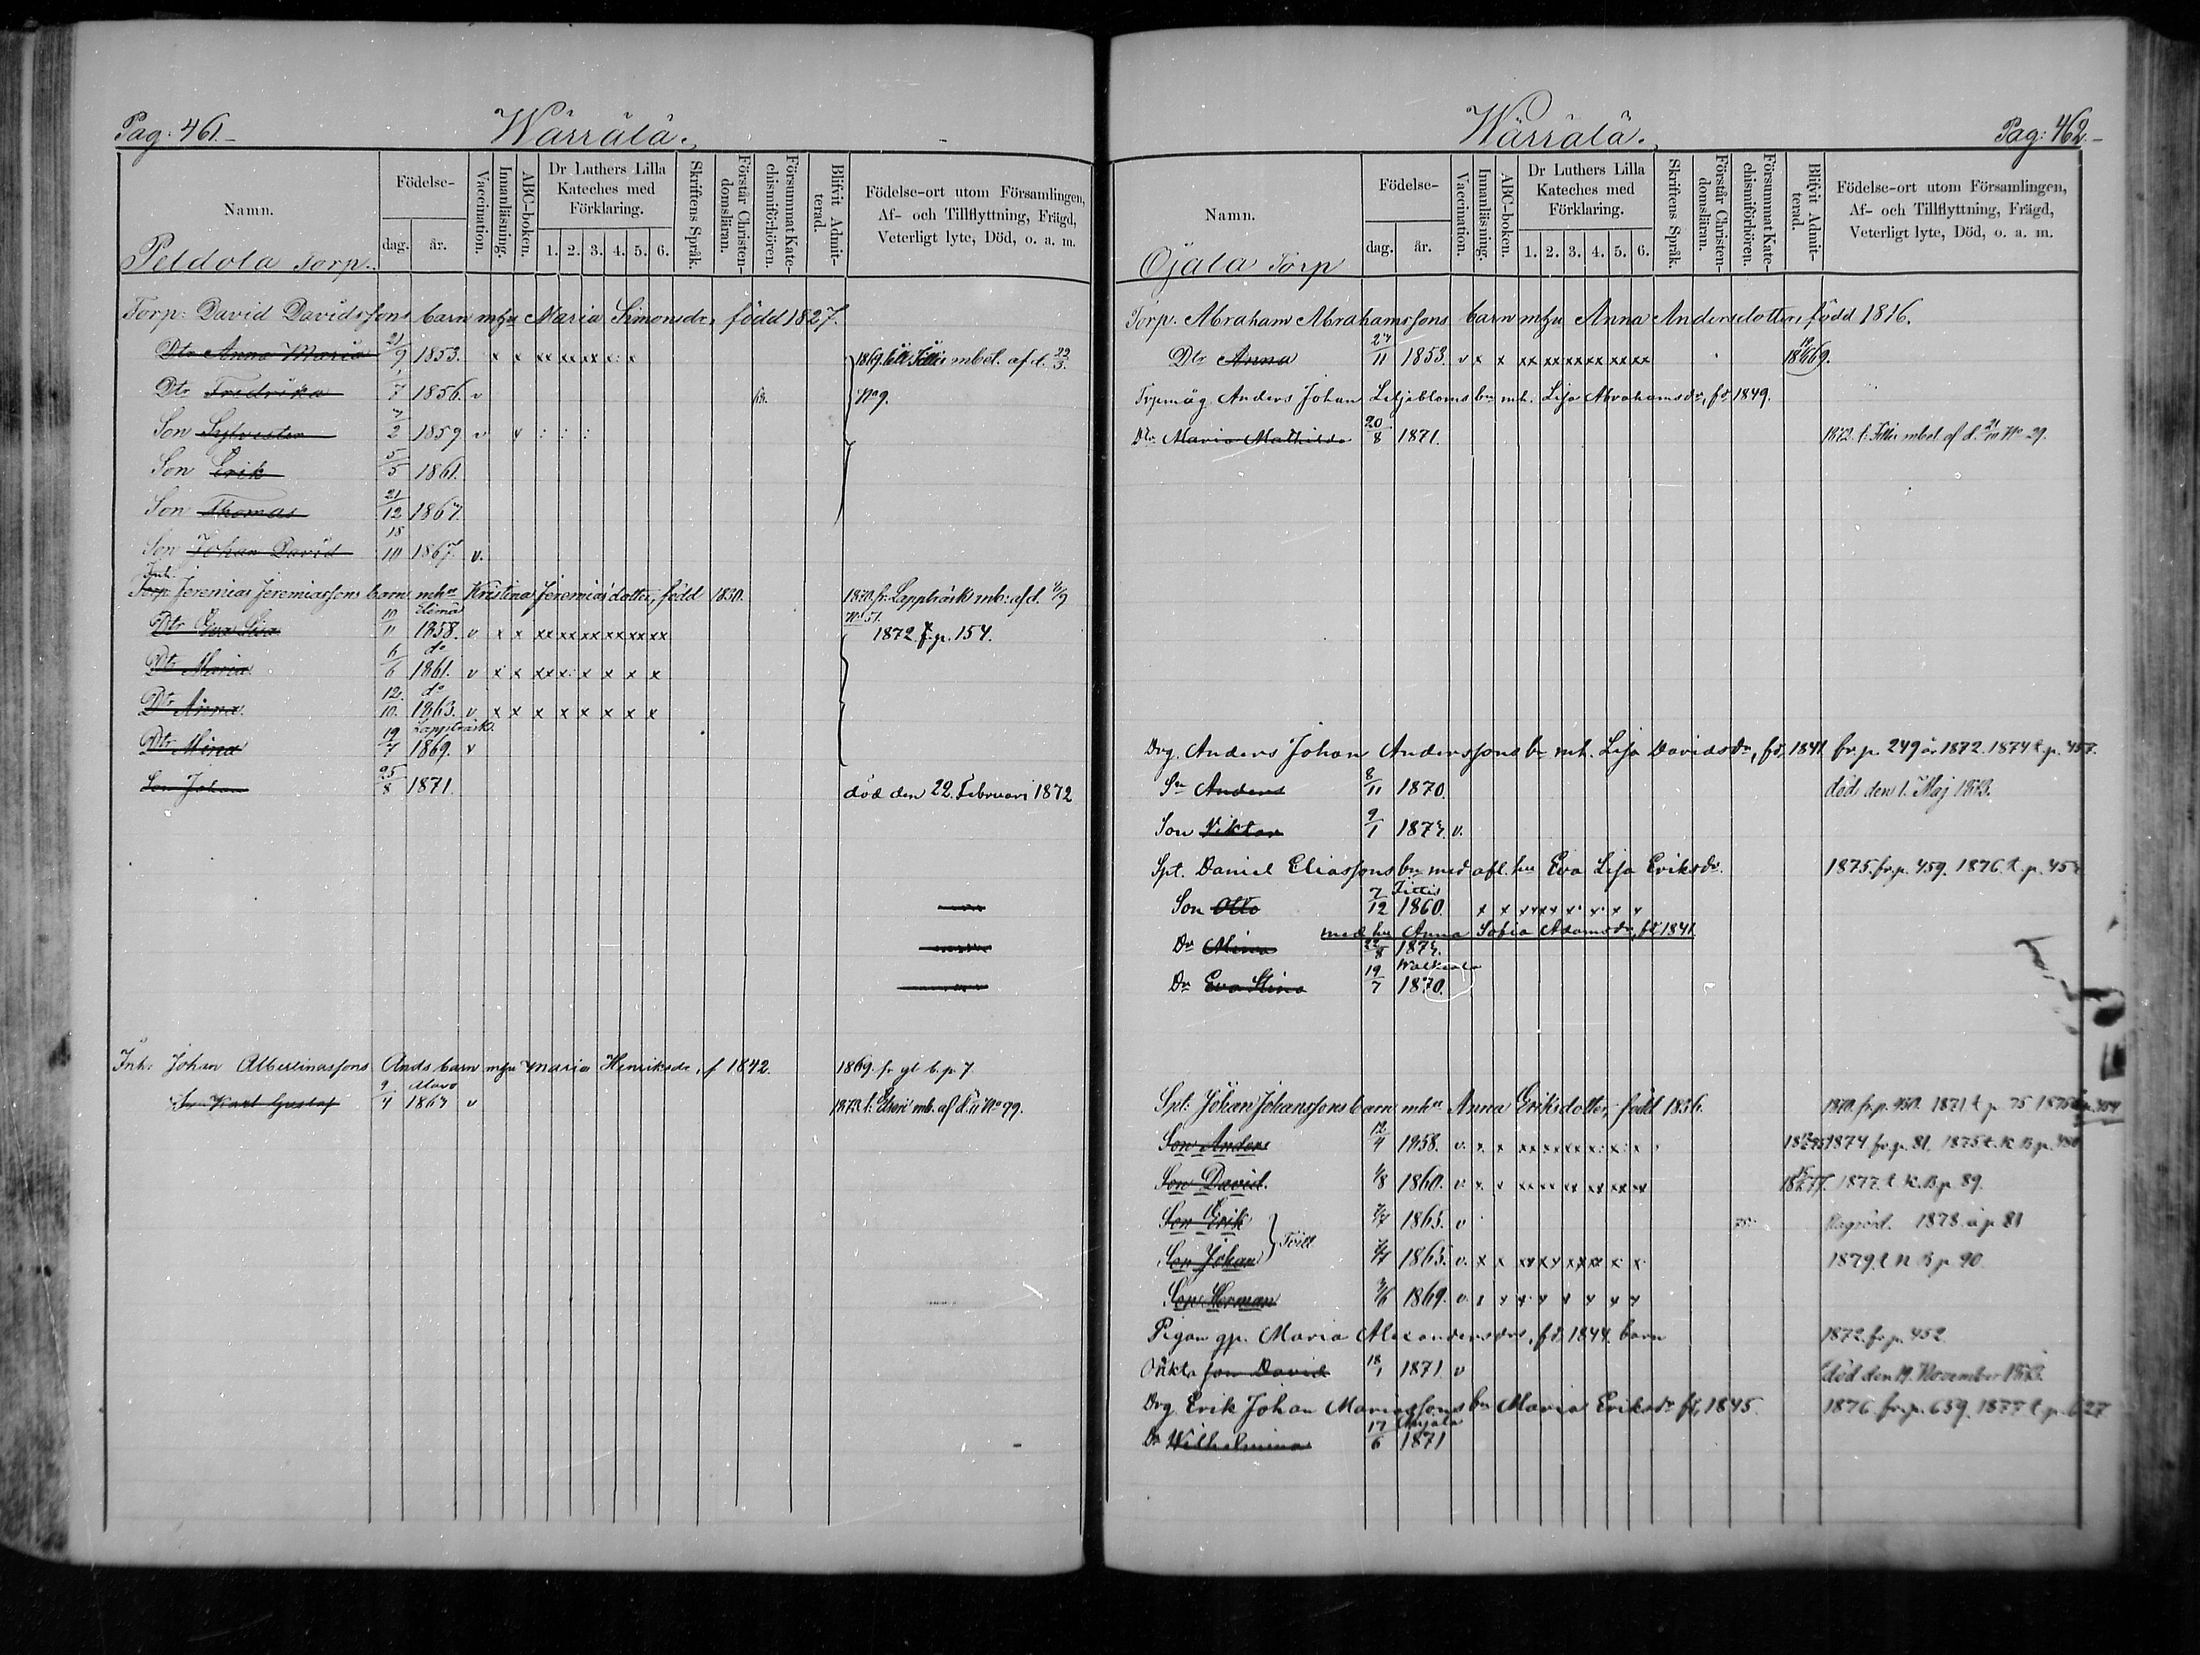 Pag: 461.
Wärrälä.
Namn.
Födelse-
dag.
år.
Vaccination.
Innanläsning.
ABC-boken.
Dr Luthers Lilla
Kateches med
Förklaring.
1. 2. 3. 4. 5. 6.
Skriftens Språk.
Förstår Christen-
domsläran.
Försummat Kate-
chismiförhören.
Blifvit Admit-
terad.
Födelse-ort utom Församlingen,
Af- och Tillflyttning, Frägd,
Veterligt lyte, Död, o. a. m.
Peldola Torp.
Torp: David Davidssons barn m hu Maria Simonsdr, född 1827.
Dtr Anna Maria 21/9 1853. x x xx xx xx x: x 1869 till Sittis mbet. af d. 22/3.
Dtr Fredrika 1/7 1856. v No 9.
Son Sylvester 7/2 1859 v v : : :
Son Erik 5/5 1861.
Son Thomas 21/12 1867.
Son Johan David 18/10 1867. v.
Inh.
Torp. Jeremias Jeremiassons barn mhu Kristina Jeremiasdotter, född 1830. 1870. fr. Lappträsk mb: af d. 4/9
Elimä No 51.
Dtr Eva Lisa 10/11 1858. v x x xx xx xx xx xx xx 1872 t. p. 154.
do
Dtr Maria 6/6 1861. v x x xx x x x x x
do
Dtr Anna 12/10. 1863. v x x x x x x x x
Lappträsk.
Dtr Mina 19/7 1869. v
Son Johan 25/8 1871. död den 22. Februari 1872
Inh: Johan Albertinassons Ands barn mhu Maria Henriksdr, f 1842. 1869. fr gl b. p 7
Son Karl Gustaf 9/4 1867 v
Pag: 462.
Wärrälä.
Namn.
Födelse-
dag.
år.
Vaccination.
Innanläsning.
ABC-boken.
Dr Luthers Lilla
Kateches med
Förklaring.
1. 2. 3. 4. 5. 6.
Skriftens Språk.
Förstår Christen-
domsläran.
Försummat Kate-
chismiförhören.
Blifvit Admit-
terad.
Födelse-ort utom Församlingen,
Af- och Tillflyttning, Frägd,
Veterligt lyte, Död, o. a. m.
Ojala Torp
Torp. Abraham Abrahamssons barn mhu Anna Andersdotter, född 1816.
Dtr Anna 27/11 1853. v x x xx xx xx xx xx xx
Trpmåg Anders Johan Liljebloms bn mh: Lisa Abrahamsdr, fd 1849.
Dtr Maria Mathilda 20/8 1871. 1872. t. Sittis mbet af d. No 29.
Drg. Anders Johan Anderssons bn mh. Lisa Davidsdr, fd, 1841. fr. p. 249 år 1872. 1874 t. p. 457.
Sn Anders 8/11 1870. död den 1. Maj 1873.
Son Viktor 9/1 1874. v.
Spt. Daniel Eliassons bn med afl. hu Eva Lisa Eriksdr. 1875. fr. p. 459. 1876. t. p. 454
Sittis
Son Otto 7/12 1860. x x xx xx x. x. x x
med hu Anna Sofia Adamsdr, fd 1841
Dr Alina 22/8 1874.
Walkeala
Dr Eva Stina 19/7 1870.
Spt: Johan Johanssons barn mhu Anna Eriksdotter, född 1836. 1870. fr. p. 450. 1871 t p. 75
Son Anders 12/4 1858. v. x x xx xx xx x: x: x 1874 fr. p. 81. 1875 t. K B p. 480
Son David. 1/8 1860. v. x x xx xx xx xx xx xx 1877. t K. B p. 89.
Son Erik 1865. v 75. 1878. å p 81
Tvill
Son Johan 1865. v. x x xx xx xx xx x x 1879 t n B p 90.
Son Herman 1869. v. x x x x x x x x
Pigan gp. Maria Alexandersdrs, fd. 1844. barn 1872. fr. p. 452
Oäkta son David 18/1 1871 v död den 19. November 1873.
Drg. Erik Johan Mariassons bn Maria Eriksdr fd, 1845. 1876. fr. p. 639. 1877 t. p. 627
Anjala
Dr Wilhelmina 17/6 1871